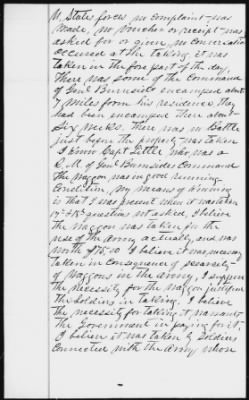 U. States forces no complaint was
made, no voucher or receipt was
asked for or given, no conversation
occured at the taking it was
taken in the fore part of the day,
There was some of the Command
of Genl Burnside encamped about
miles form his residence, they
had been encamped there about
Six weeks. there was no battle
just before the property was taken
I know Capt. he was a
Q.M. of Genl Burnsides Command
The Waggon was in good running
Condition, My means of knowing
is that I was present when it was taken
17th & 18th questions not asked, I believe
the waggon was taken for the
use of the army actually, and was
worth $75.00 I believe it was
taken in Consequence of scarcity
of Waggons in the Army, I suppose
the necessity for the waggon justifyed
the Soldiers in taking. I believe
the necessity for taking it warrants
the Government in paying for it.
I believe it was taken by Soldiers
Connected with the Army when